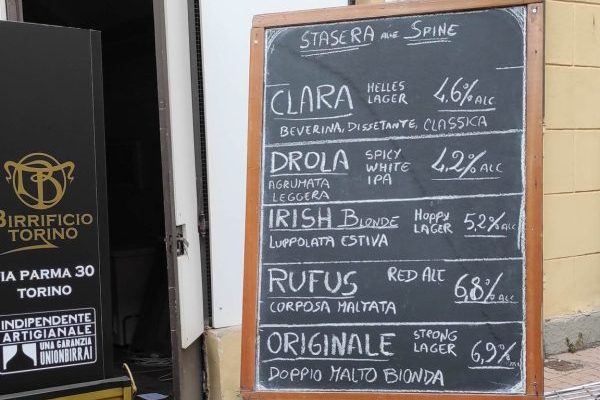 STASERA alle SPINE
CLARA HELLES LAGER 4,6% ALC
BEVERINA, DISSETANTE, CLASSICA
DROLA SPICY WHITE IPA 4,2% ALC
AGRUMATA
LEGGERA
IRISH BLONDE HOPPY LAGER 5,2% ALC
LUPPOLATA ESTIVA
RUFUS RED ALE 6,8% ALC
CORPOSA MALTATA
ORIGINALE STRONG LAGER 6,9% ALC
DOPPIO MALTO BIONDA
BIRRIFICIO
TORINO
VIA PARMA 30
TORINO
INDIPENDENTE
ARTIGIANALE
UNA GARANZIA
UNIONBIRRAI